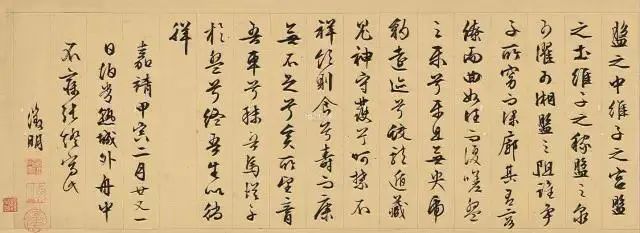 盤之中維子之宮盤
之土維子之稼盤之泉
可濯可湘盤之阻誰爭
子所窈而深廓其有容
繚而曲如往而復嗟盤
之樂兮樂且無央虎
豹遠迹兮蛟龍遁藏
鬼神守護兮呵禁不
祥飲則食兮壽而康
無不足兮奚所望膏
吾車兮秣吾馬從子
於盤兮終吾生以徜
徉
嘉靖甲寅二月廿又一
日泊城外舟中
不寐燈寫此
徵明